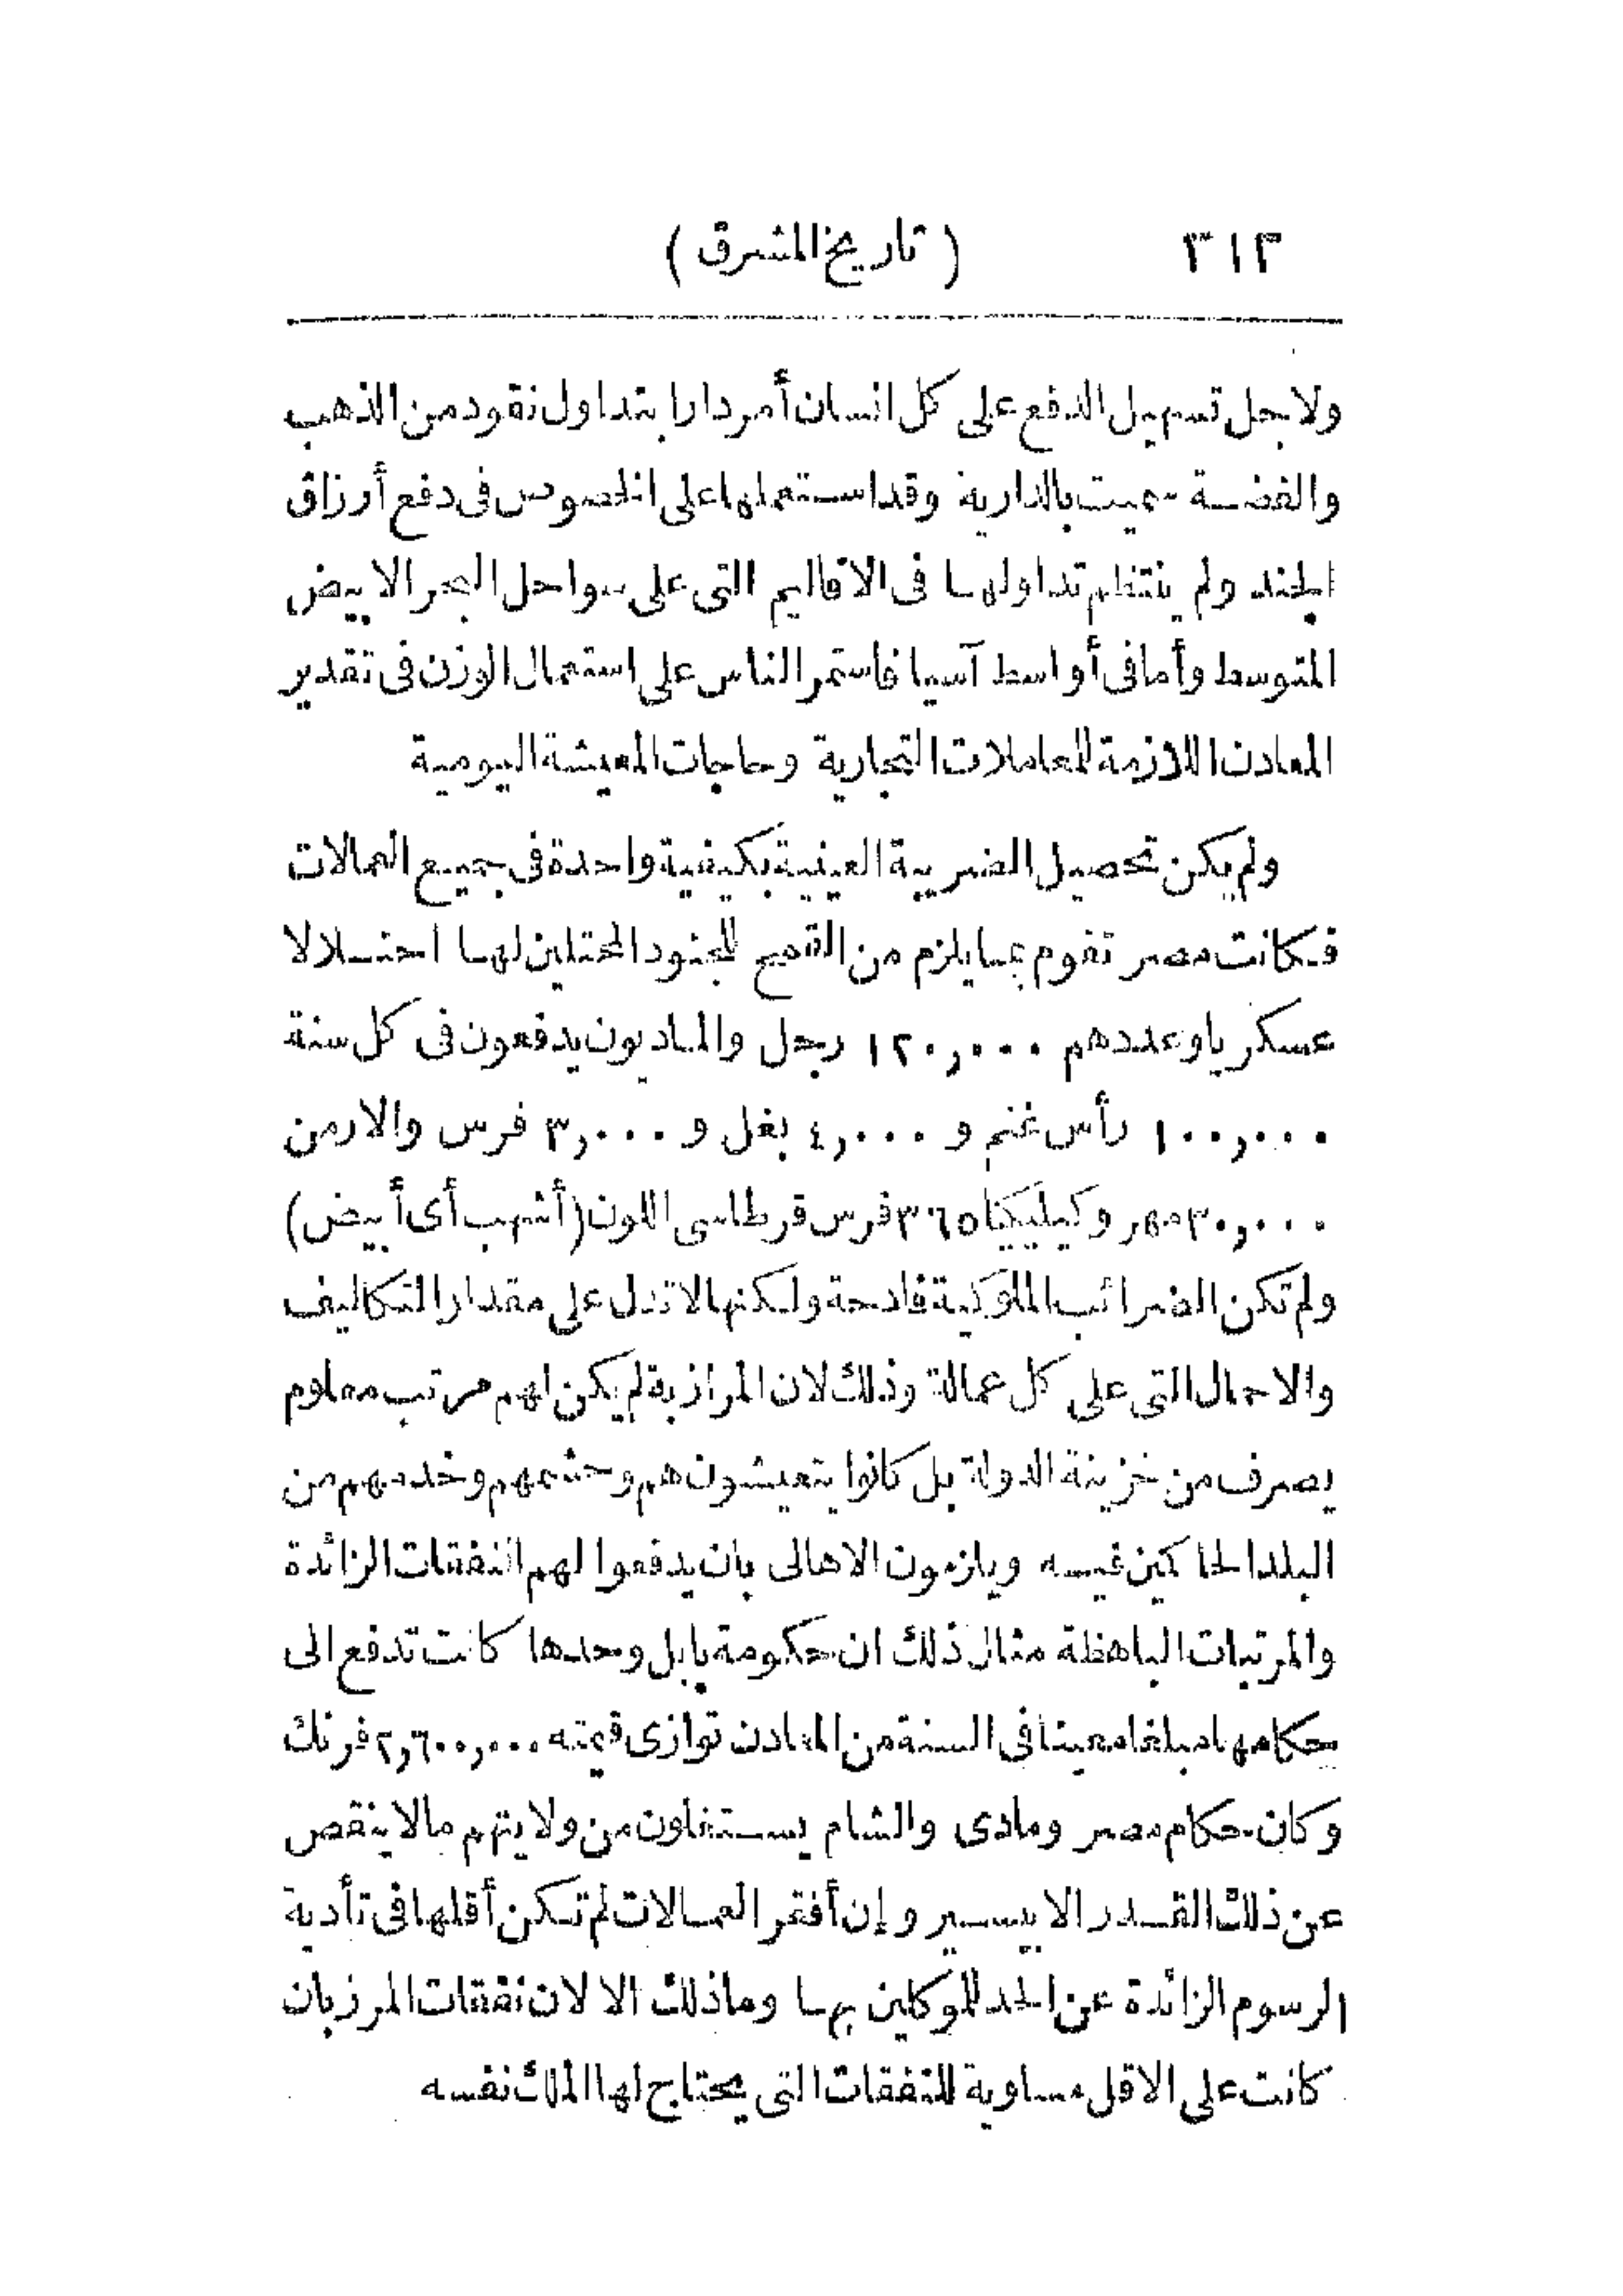 ٣١٣ (تاريخ المشرق)
ولاجل تسهيل الدفع على كل انسان أمر دارا بتداول نقود من الذهب
والفضة سميت بالدارية وقد استعملها على الخصوص فى دفع أرزاق
الجند ولم ينتظم تداولها فى الاقاليم التى على سواحل البحر الابيض
المتوسط وأما فى أواسط آسيا فاستمر الناس على استعمال الوزن فى تقدير
المعادن اللازمة للمعاملات التجارية وحاجات المعيشة اليومية
ولم يكن تحصيل الضريبة العينية بكيفية واحدة فى جميع العمالات
فكانت مصر تقوم بما يلزم من القمح للجنود المحتلين لها احتلالا
عسكريا وعددهم ١٢٠,٠٠٠ رجل والماديون يدفعون فى كل سنة
١٠٠,٠٠٠ رأس غنم و ٤,٠٠٠ بغل و ٣,٠٠٠ فرس والارمن
٣٠,٠٠٠ مهر وكيليكيا ٣٦٥ فرس قرطاسى اللون (أشهب أى أبيض)
ولم تكن الضرائب الملوكية فادحة ولكنها لا تدل على مقدار التكاليف
والاحمال التى على كل عمالة وذلك لان المرازبة لم يكن لهم مرتب معلوم
يصرف من خزينة الدولة بل كانوا يتعيشون هم وحشمهم وخدمهم من
البلد الحاكمين فيه ويلزمون الاهالى بان يدفعوا لهم النفقات الزائدة
والمرتبات الباهظة مثال ذلك ان حكومة بابل وحدها كانت تدفع الى
حكامها مبلغا معينا فى السنة من المعادن توازى قيمته ٢,٦٠٠,٠٠٠ فرنك
وكان حكام مصر ومادى والشام يستغلون من ولايتهم مالا ينقص
عن ذلك القدر الا بيسير وإن أفقر العمالات لم تكن أقلها فى تأدية
الرسوم الزائدة عن الحد للموكلين بها وما ذلك الا لان نفقات المرزبان
كانت على الاقل مساوية للنفقات التى يحتاج لها الملك نفسه